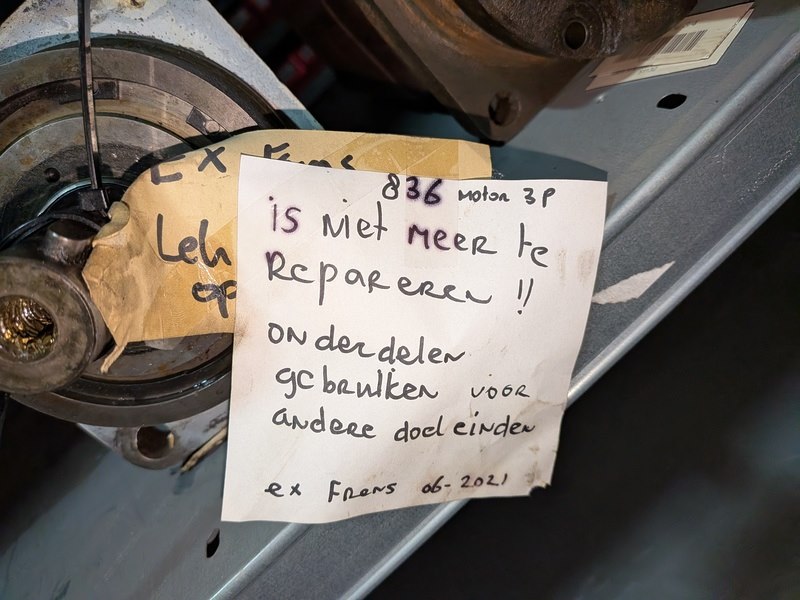 Ex Frans
Leh
op
836 Motor 3P
is Niet Meer te
Repareren !!
onderdelen
gebruiken voor
andere doeleinden
ex Frans 06-2021